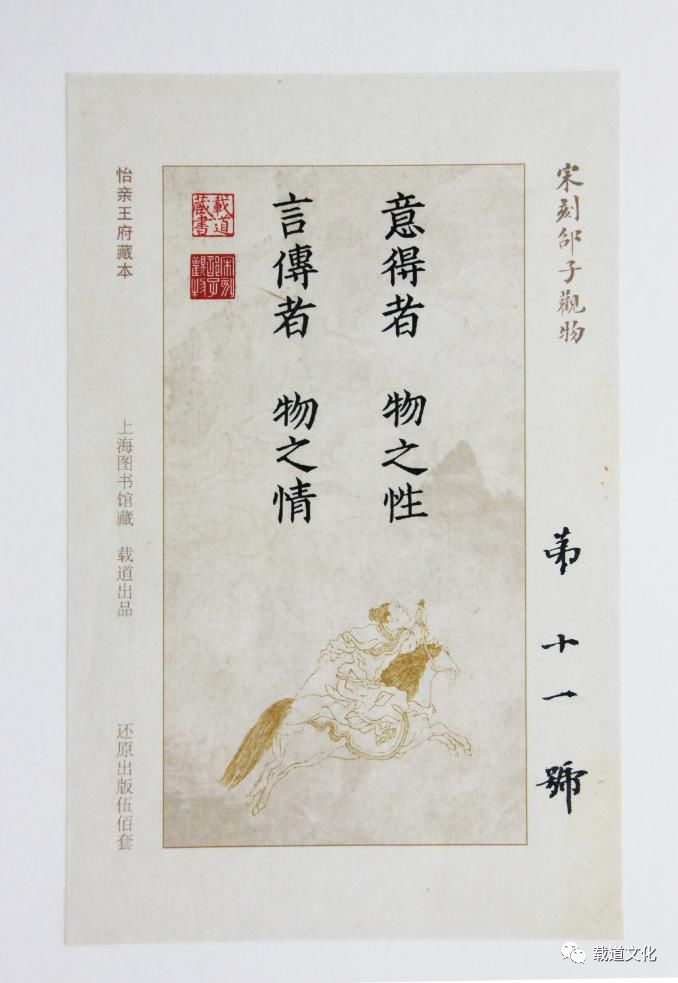 宋刻邵子觀物
第十一號
意得者 物之性
言傳者 物之情
載道藏書
宋刻邵子觀物
怡亲王府藏本
上海图书馆藏 载道出品
还原出版伍佰套
载道文化